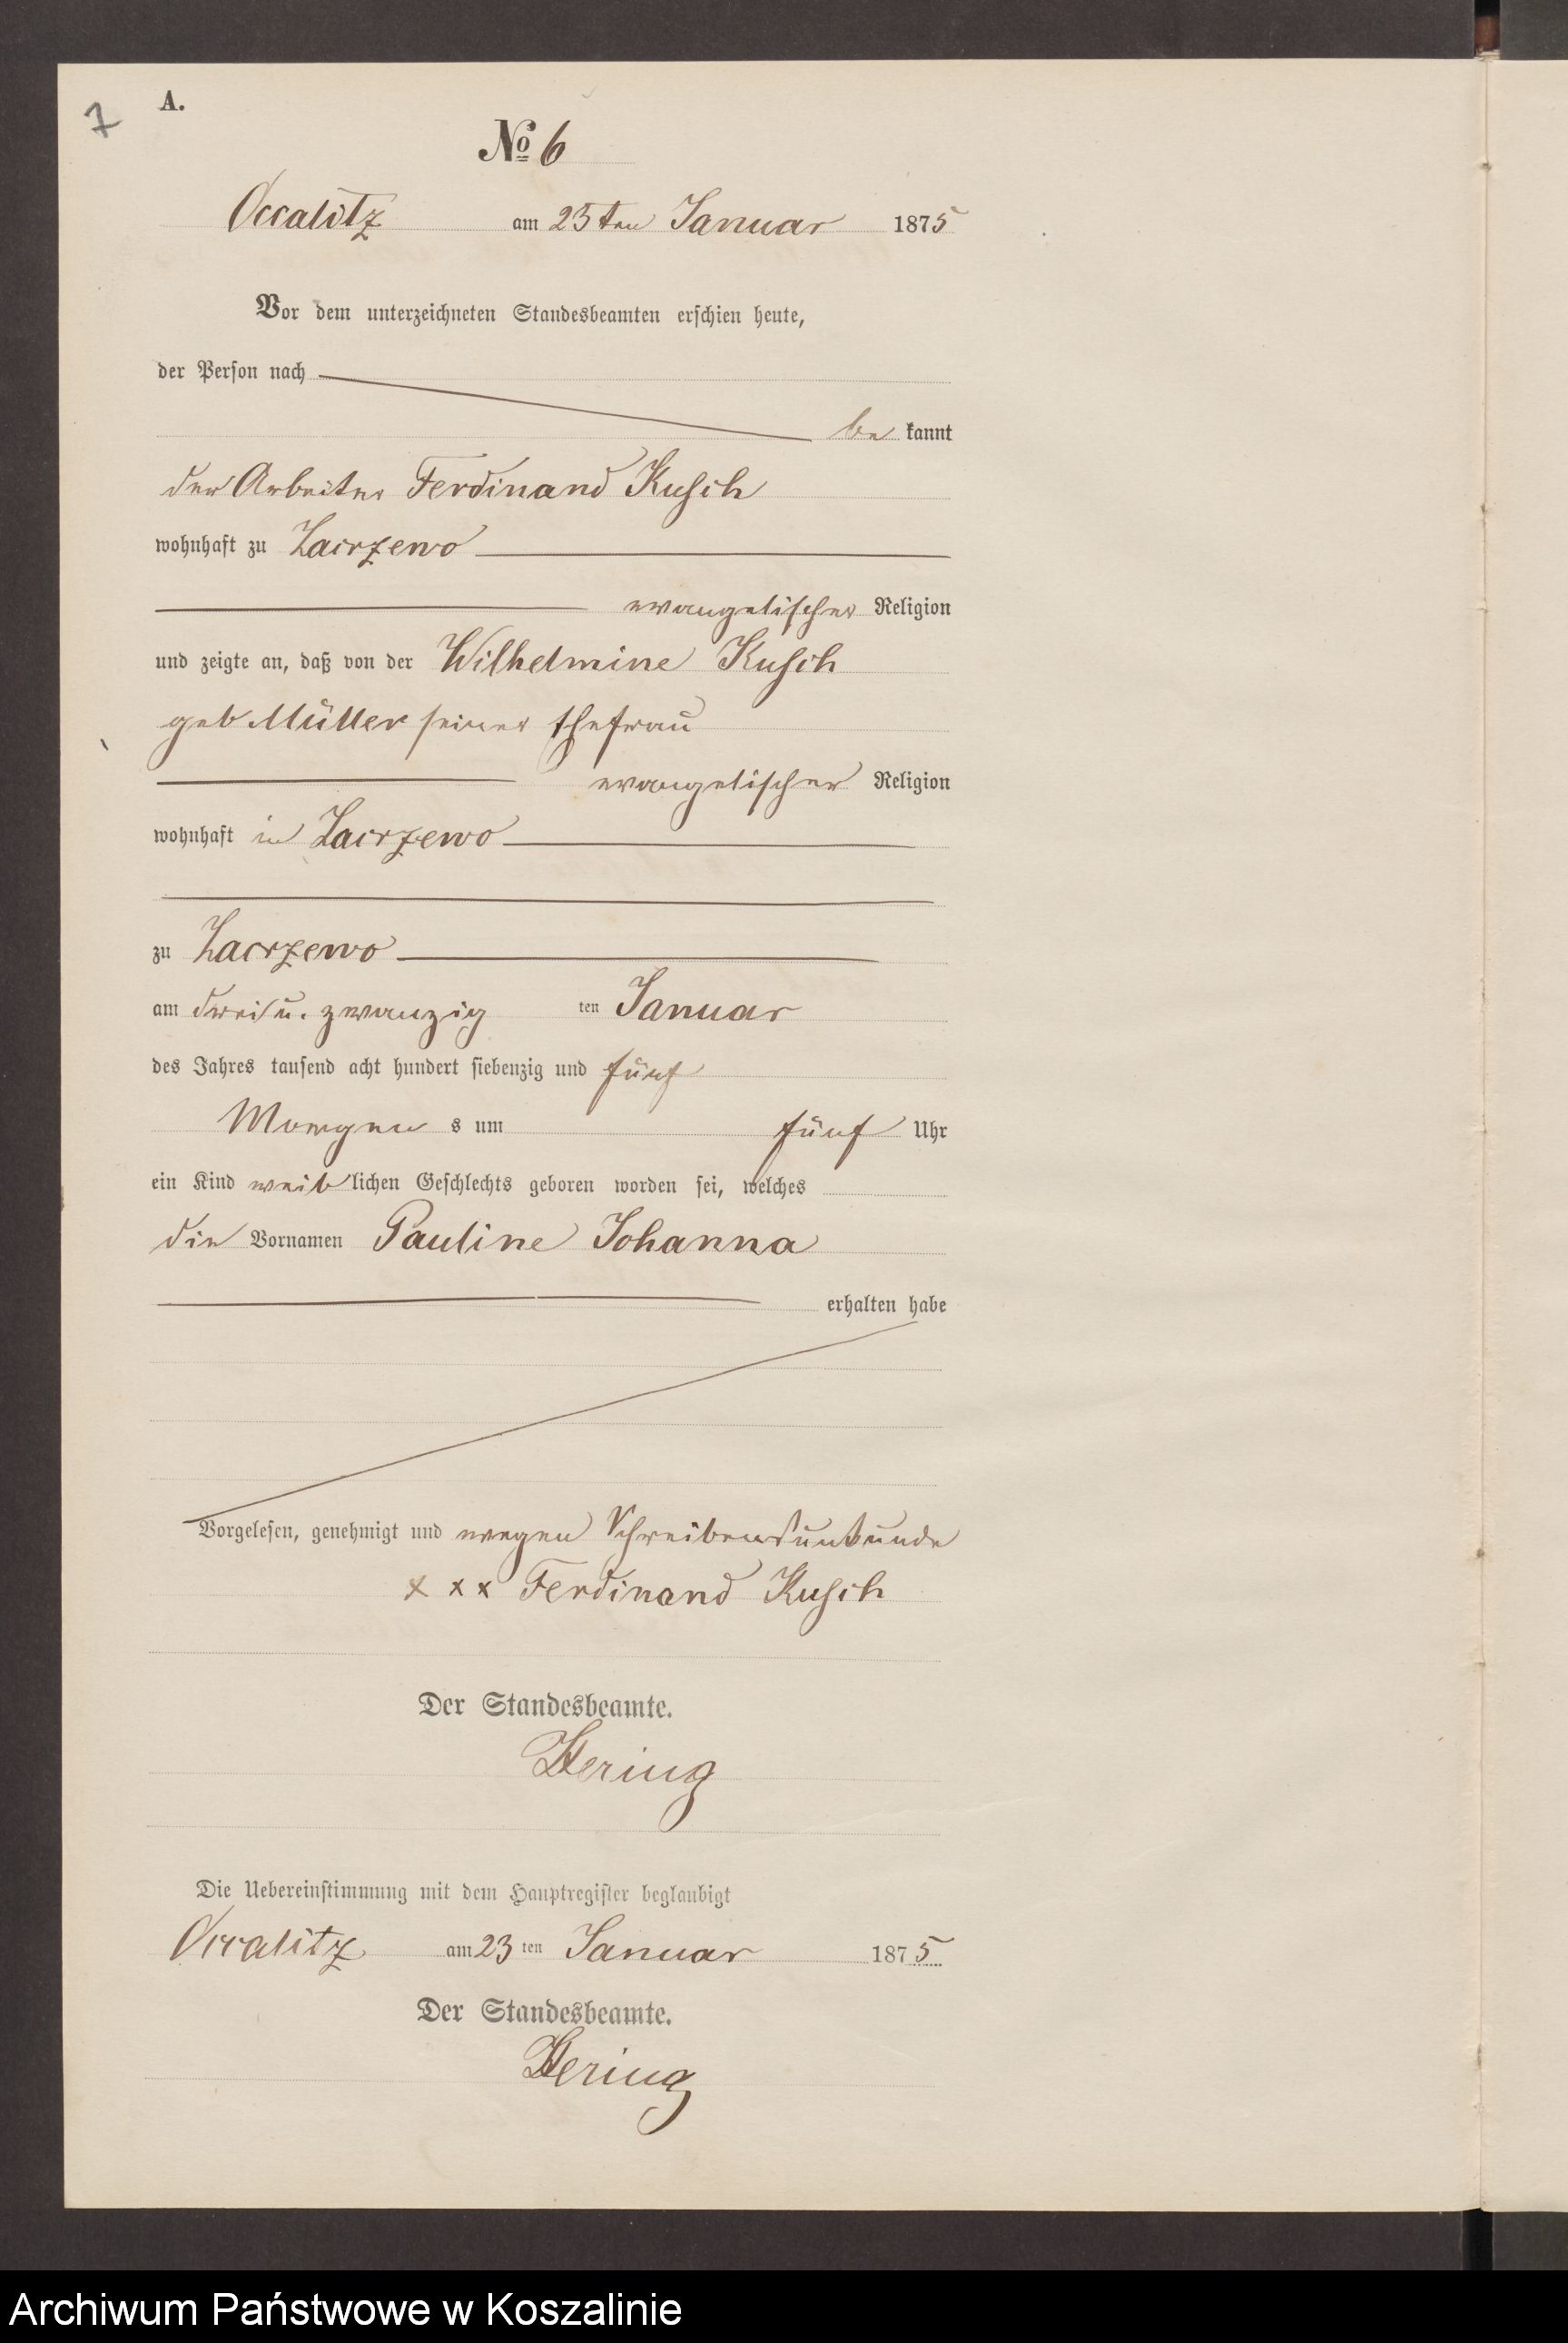 7
A.
No 6
Occalitz am 25ten Januar 1875
Vor dem unterzeichneten Standesbeamten erschien heute,
der Person nach
be kannt
der Arbeiter Ferdinand Kusch
wohnhaft zu Zacrzewo
evangelischer Religion
und zeigte an, daß von der Wilhelmine Kusch
geb Müller seiner Ehefrau
evangelischer Religion
wohnhaft in Zacrzewo
zu Zacrzewo
am drei u. zwanzig ten Januar
des Jahres tausend acht hundert siebenzig und fünf
Morgen s um fünf Uhr
ein Kind weib lichen Geschlechts geboren worden sei, welches
die Vornamen Pauline Johanna
erhalten habe
Vorgelesen, genehmigt und wegen Schreibensunkunde
x x x Ferdinand Kusch
Der Standesbeamte.
Hering
Die Uebereinstimmung mit dem Hauptregister beglaubigt
Occalitz am 23 ten Januar 1875
Der Standesbeamte.
Hering
Archiwum Państwowe w Koszalinie